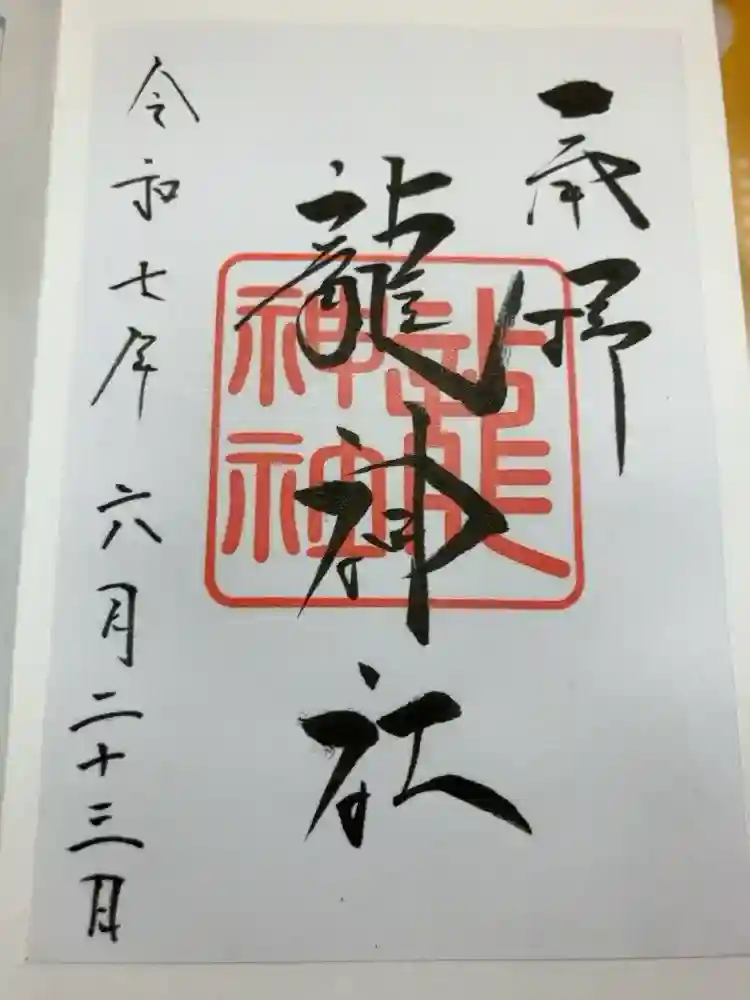 龍神社
龍神社
令和七年 六月二十三日